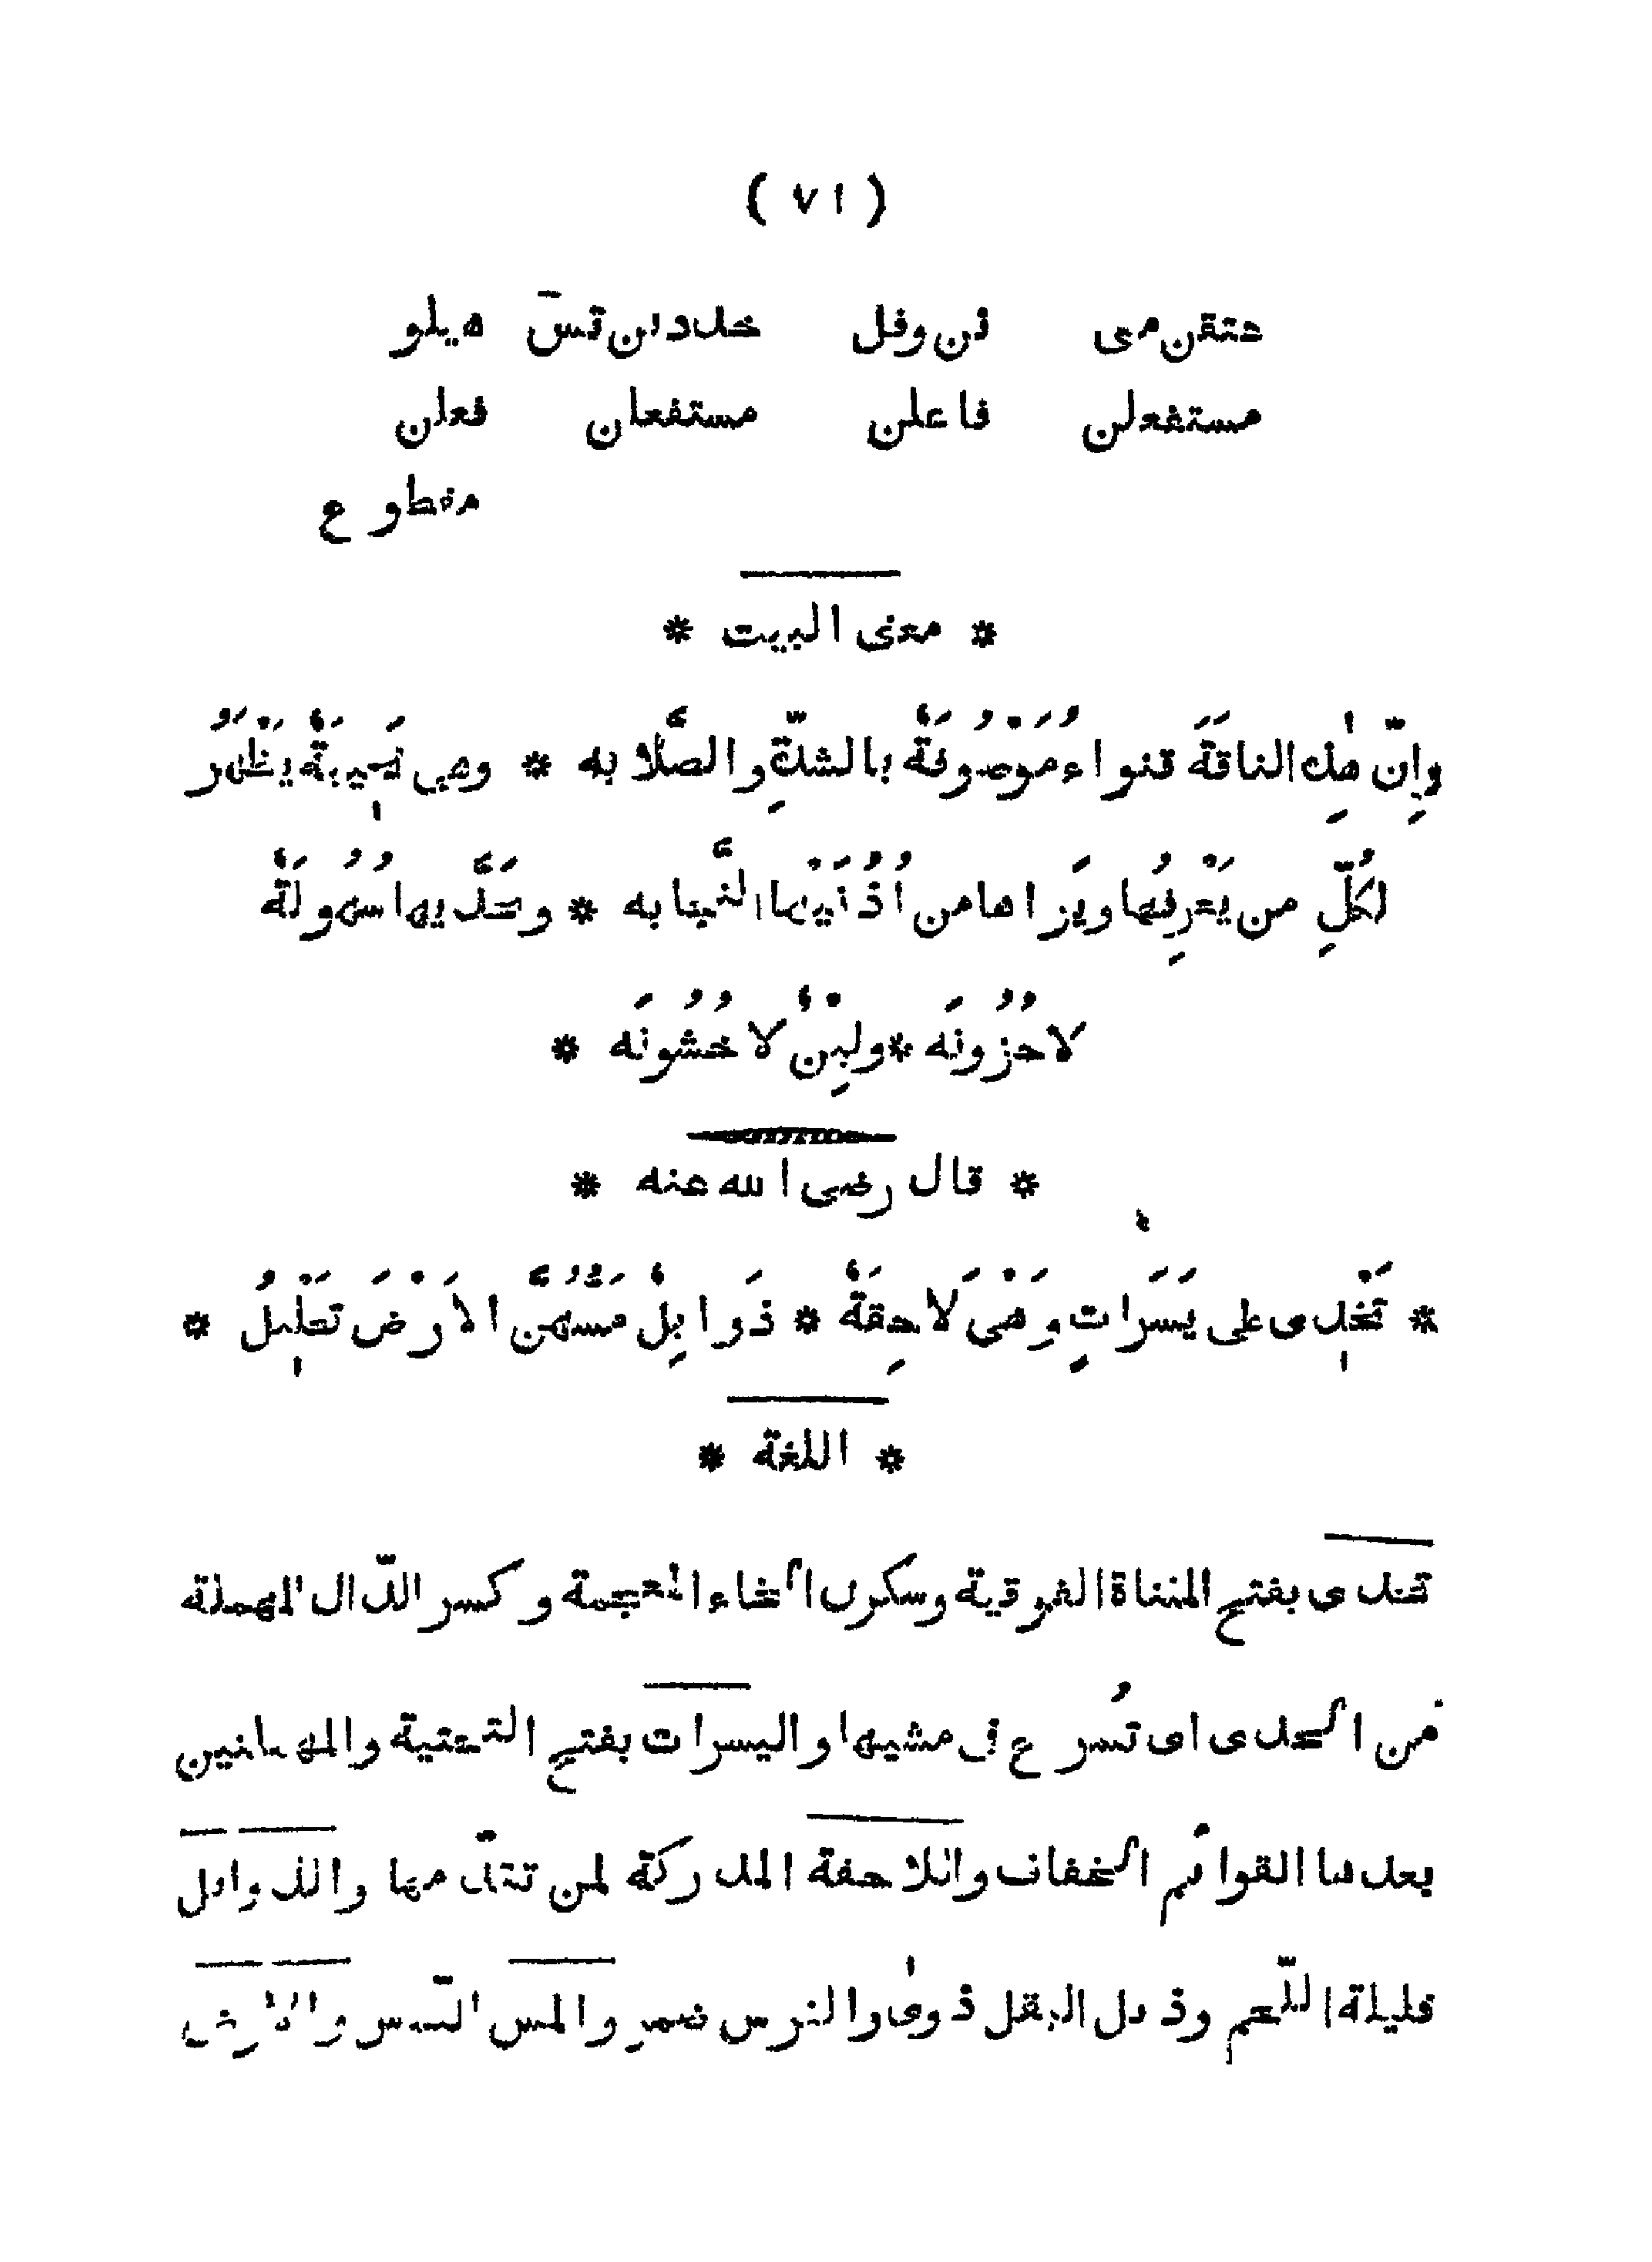 ( ٧١ )
عتقن مى فن وفل خلددين تس هيلو
مستفعلن فاعلن مستفعلن فعلن
مقطوع
* معنى البيت *
وإنّ هٰذه الناقةَ قنواءُ مَوْصُوفَةٌ بالشدّةِ والصَّلابه * وهى نَجِيبَةٌ يَظْهَرُ
لكُلِّ من يَعْرِفُها ويَراها من أُذُنَيْها النَّجابه * وخَدَّيها سُهُولَةٌ
لا حُزُونَه * ولِيْنٌ لا خُشُونَه *
* قال رضى الله عنه *
* تَخْدِى على يَسَرَاتٍ وَهْىَ لَاحِقَةٌ * ذَوابِلٌ مَسُّهُنَّ الاَرْضَ تَحْلِيلُ *
* اللغة *
تخدى بفتح المثناة الفوقية وسكون الخاء المعجمة وكسر الدّال المهملة
من الخدى اى تُسرع فى مشيها واليسرات بفتح التحتية والمهملتين
بعدها القوائم الخفاف واللاحقة المدركة لمن تقدّمها والذوابل
قليلة اللّحم وذبل البقل ذوىٰ والفرس ضمر والمس اللّمس والارض